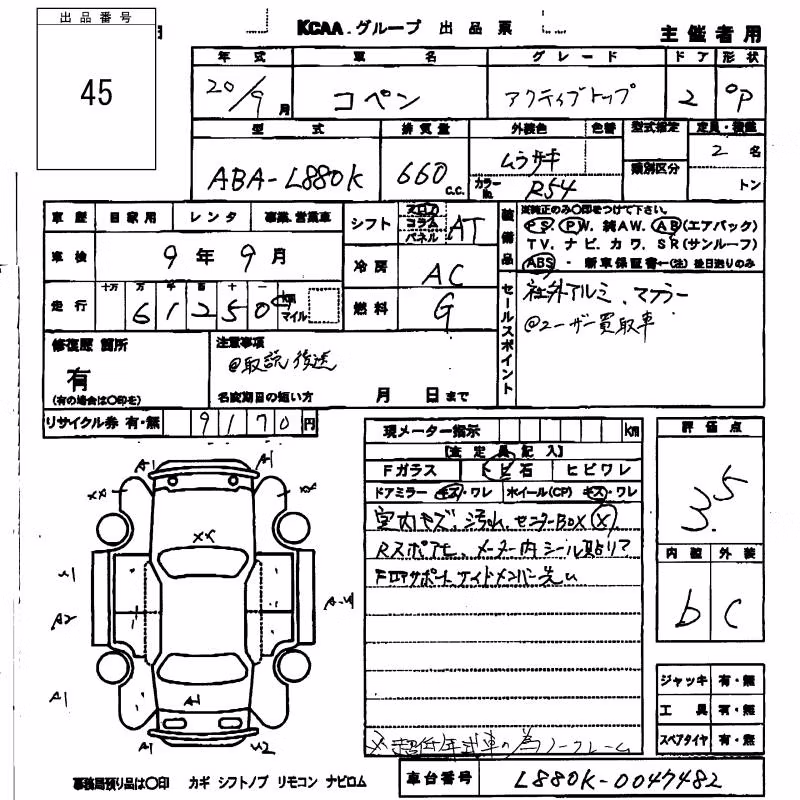 出品番号
45
KCAA.グループ 出品票
主催者用
年式 車名 グレード ドア 形状
20/9月 コペン アクティブトップ 2 OP
型式 排気量 外装色 色替 型式指定 定員・積載
ABA-L880K 660 C.C. ムラサキ 類別区分 2名
カラーNo. R54 トン
車歴 自家用 レンタ 事業、営業車
シフト フロア コラム パネル AT
装備品
※純正のみ〇印をつけて下さい。
PS, PW, 純AW, AB(エアバック)
TV, ナビ, カワ, SR(サンルーフ)
ABS ・ 新車保証書←(注)後日送りのみ
車検 9年9月
冷房 AC
走行 十万 万 千 百 十 一
61250 km マイル
燃料 G
セールスポイント
社外アルミ、マフラー
@ユーザー買取車
修復歴 箇所
有
(有の場合は〇印を)
注意事項
@取説後送
名変期日の短い方 月 日まで
リサイクル券 有・無 9170円
現メーター指示 km
【査定員記入】
Fガラス トビ石 ヒビワレ
ドアミラー キズ・ワレ ホイール(CP) キズ・ワレ
室内キズ、汚れ、センターBOX(X)
Rスポアセ、メーター内シール貼り?
FロアサポートサイドメンバーX
※超低年式車の為ノークレーム
評価点
3.5
内装 外装
b C
ジャッキ 有・無
工具 有・無
スペアタイヤ 有・無
A1 A1
XX XX
XX
U1
A2 A-U1
A1 A1 A1
A1 U2
事務局預り品は〇印 カギ シフトノブ リモコン ナビロム
車台番号 L880K-0047482